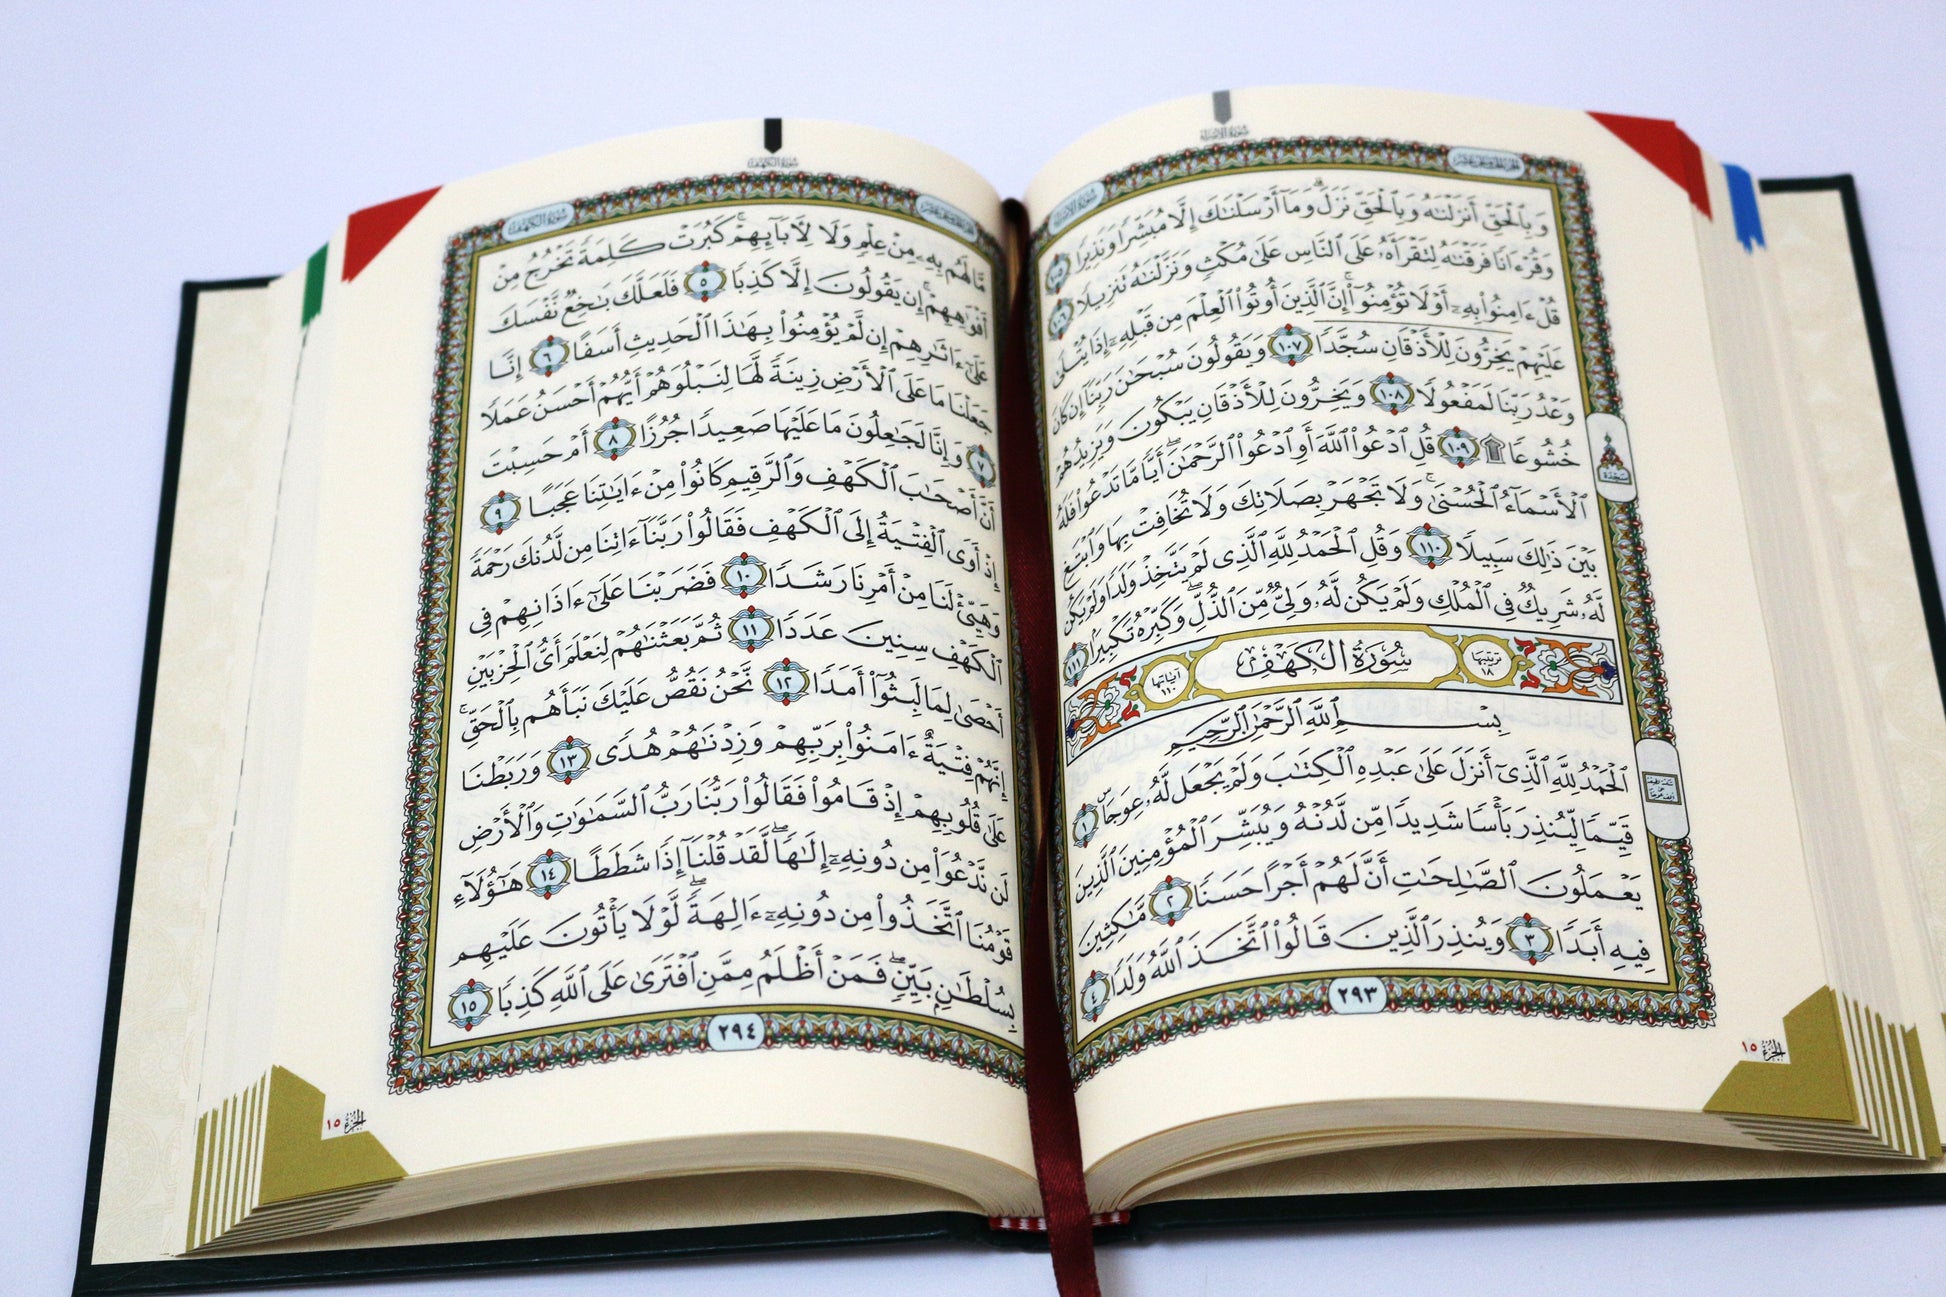 سورة الإسراء
الجزء الخامس عشر
سورة الإسراء
وَبِٱلْحَقِّ أَنزَلْنَـٰهُ وَبِٱلْحَقِّ نَزَلَ ۗ وَمَآ أَرْسَلْنَـٰكَ إِلَّا مُبَشِّرًا وَنَذِيرًا ١٠٥
وَقُرْءَانًا فَرَقْنَـٰهُ لِتَقْرَأَهُۥ عَلَى ٱلنَّاسِ عَلَىٰ مُكْثٍ وَنَزَّلْنَـٰهُ تَنزِيلًا ١٠٦
قُلْ ءَامِنُوا۟ بِهِۦٓ أَوْ لَا تُؤْمِنُوٓا۟ ۚ إِنَّ ٱلَّذِينَ أُوتُوا۟ ٱلْعِلْمَ مِن قَبْلِهِۦٓ إِذَا يُتْلَىٰ
عَلَيْهِمْ يَخِرُّونَ لِلْأَذْقَانِ سُجَّدًا ١٠٧ وَيَقُولُونَ سُبْحَـٰنَ رَبِّنَآ إِن كَانَ
وَعْدُ رَبِّنَا لَمَفْعُولًا ١٠٨ وَيَخِرُّونَ لِلْأَذْقَانِ يَبْكُونَ وَيَزِيدُهُمْ
خُشُوعًا ۩ ١٠٩ قُلِ ٱدْعُوا۟ ٱللَّهَ أَوِ ٱدْعُوا۟ ٱلرَّحْمَـٰنَ ۖ أَيًّا مَّا تَدْعُوا۟ فَلَهُ
ٱلْأَسْمَآءُ ٱلْحُسْنَىٰ ۚ وَلَا تَجْهَرْ بِصَلَاتِكَ وَلَا تُخَافِتْ بِهَا وَٱبْتَغِ
بَيْنَ ذَٰلِكَ سَبِيلًا ١١٠ وَقُلِ ٱلْحَمْدُ لِلَّهِ ٱلَّذِى لَمْ يَتَّخِذْ وَلَدًا وَلَمْ يَكُن
لَّهُۥ شَرِيكٌ فِى ٱلْمُلْكِ وَلَمْ يَكُن لَّهُۥ وَلِىٌّ مِّنَ ٱلذُّلِّ ۖ وَكَبِّرْهُ تَكْبِيرًۢا ١١١
سجدة
ترتيبها ١٨ سُورَةُ الكَهْفِ آياتها ١١٠
بِسْمِ ٱللَّهِ ٱلرَّحْمَـٰنِ ٱلرَّحِيمِ
ٱلْحَمْدُ لِلَّهِ ٱلَّذِىٓ أَنزَلَ عَلَىٰ عَبْدِهِ ٱلْكِتَـٰبَ وَلَمْ يَجْعَل لَّهُۥ عِوَجَا ۜ ١
قَيِّمًا لِّيُنذِرَ بَأْسًا شَدِيدًا مِّن لَّدُنْهُ وَيُبَشِّرَ ٱلْمُؤْمِنِينَ ٱلَّذِينَ
يَعْمَلُونَ ٱلصَّـٰلِحَـٰتِ أَنَّ لَهُمْ أَجْرًا حَسَنًا ٢ مَّـٰكِثِينَ
فِيهِ أَبَدًا ٣ وَيُنذِرَ ٱلَّذِينَ قَالُوا۟ ٱتَّخَذَ ٱللَّهُ وَلَدًا ٤
٢٩٣
الجزء ١٥
سورة الكهف
الجزء الخامس عشر
سورة الكهف
مَّا لَهُم بِهِۦ مِنْ عِلْمٍ وَلَا لِـَٔابَآئِهِمْ ۚ كَبُرَتْ كَلِمَةً تَخْرُجُ مِنْ
أَفْوَٰهِهِمْ ۚ إِن يَقُولُونَ إِلَّا كَذِبًا ٥ فَلَعَلَّكَ بَـٰخِعٌ نَّفْسَكَ
عَلَىٰٓ ءَاثَـٰرِهِمْ إِن لَّمْ يُؤْمِنُوا۟ بِهَـٰذَا ٱلْحَدِيثِ أَسَفًا ٦ إِنَّا
جَعَلْنَا مَا عَلَى ٱلْأَرْضِ زِينَةً لَّهَا لِنَبْلُوَهُمْ أَيُّهُمْ أَحْسَنُ عَمَلًا
٧ وَإِنَّا لَجَـٰعِلُونَ مَا عَلَيْهَا صَعِيدًا جُرُزًا ٨ أَمْ حَسِبْتَ
أَنَّ أَصْحَـٰبَ ٱلْكَهْفِ وَٱلرَّقِيمِ كَانُوا۟ مِنْ ءَايَـٰتِنَا عَجَبًا ٩
إِذْ أَوَى ٱلْفِتْيَةُ إِلَى ٱلْكَهْفِ فَقَالُوا۟ رَبَّنَآ ءَاتِنَا مِن لَّدُنكَ رَحْمَةً
وَهَيِّئْ لَنَا مِنْ أَمْرِنَا رَشَدًا ١٠ فَضَرَبْنَا عَلَىٰٓ ءَاذَانِهِمْ فِى
ٱلْكَهْفِ سِنِينَ عَدَدًا ١١ ثُمَّ بَعَثْنَـٰهُمْ لِنَعْلَمَ أَىُّ ٱلْحِزْبَيْنِ
أَحْصَىٰ لِمَا لَبِثُوٓا۟ أَمَدًا ١٢ نَّحْنُ نَقُصُّ عَلَيْكَ نَبَأَهُم بِٱلْحَقِّ ۚ
إِنَّهُمْ فِتْيَةٌ ءَامَنُوا۟ بِرَبِّهِمْ وَزِدْنَـٰهُمْ هُدًى ١٣ وَرَبَطْنَا
عَلَىٰ قُلُوبِهِمْ إِذْ قَامُوا۟ فَقَالُوا۟ رَبُّنَا رَبُّ ٱلسَّمَـٰوَٰتِ وَٱلْأَرْضِ
لَن نَّدْعُوَا۟ مِن دُونِهِۦٓ إِلَـٰهًا ۖ لَّقَدْ قُلْنَآ إِذًا شَطَطًا ١٤ هَـٰٓؤُلَآءِ
قَوْمُنَا ٱتَّخَذُوا۟ مِن دُونِهِۦٓ ءَالِهَةً ۖ لَّوْلَا يَأْتُونَ عَلَيْهِم
بِسُلْطَـٰنٍۭ بَيِّنٍ ۖ فَمَنْ أَظْلَمُ مِمَّنِ ٱفْتَرَىٰ عَلَى ٱللَّهِ كَذِبًا ١٥
٢٩٤
الجزء ١٥